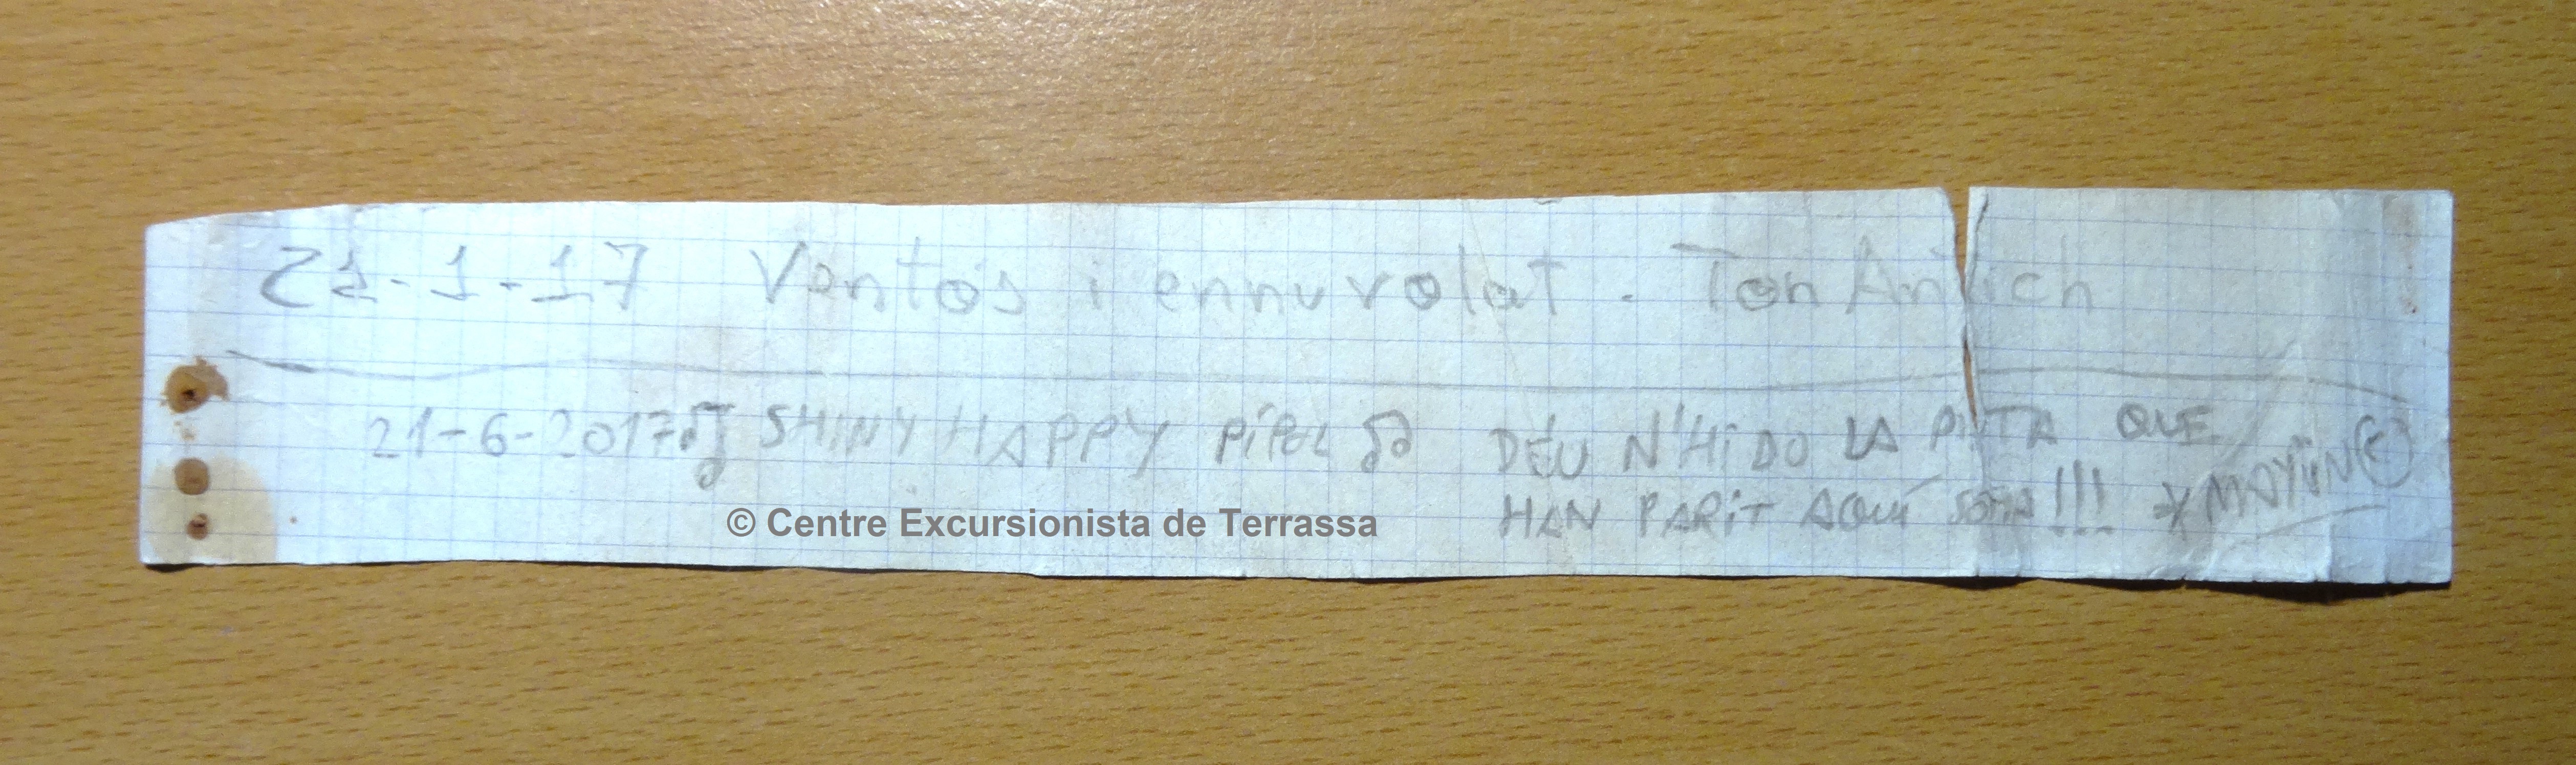 21-1-17 Ventós i ennuvolat. Ton Antich
21-6-2017 ♫ SHINY HAPPY PÍPOL ♫ DÉU N'HI DO LA PINTA QUE
HAN PARIT AQUÍ SOTA!!!
© Centre Excursionista de Terrassa